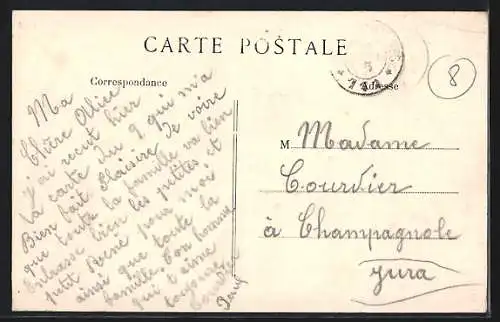 CARTE POSTALE
Correspondance
Adresse
8
Ma
Chère Alice
j'ai recut hier
ta carte du 9 qui m'a
Bien fait plaisire de voire
que toute la famille va bien
Embrasse bien les petites et
petit René pour moi
ainsi que toute la
famille. Ton homme
qui t'aime
toujours
Courdier
M Madame
Courdier
à Champagnole
Jura